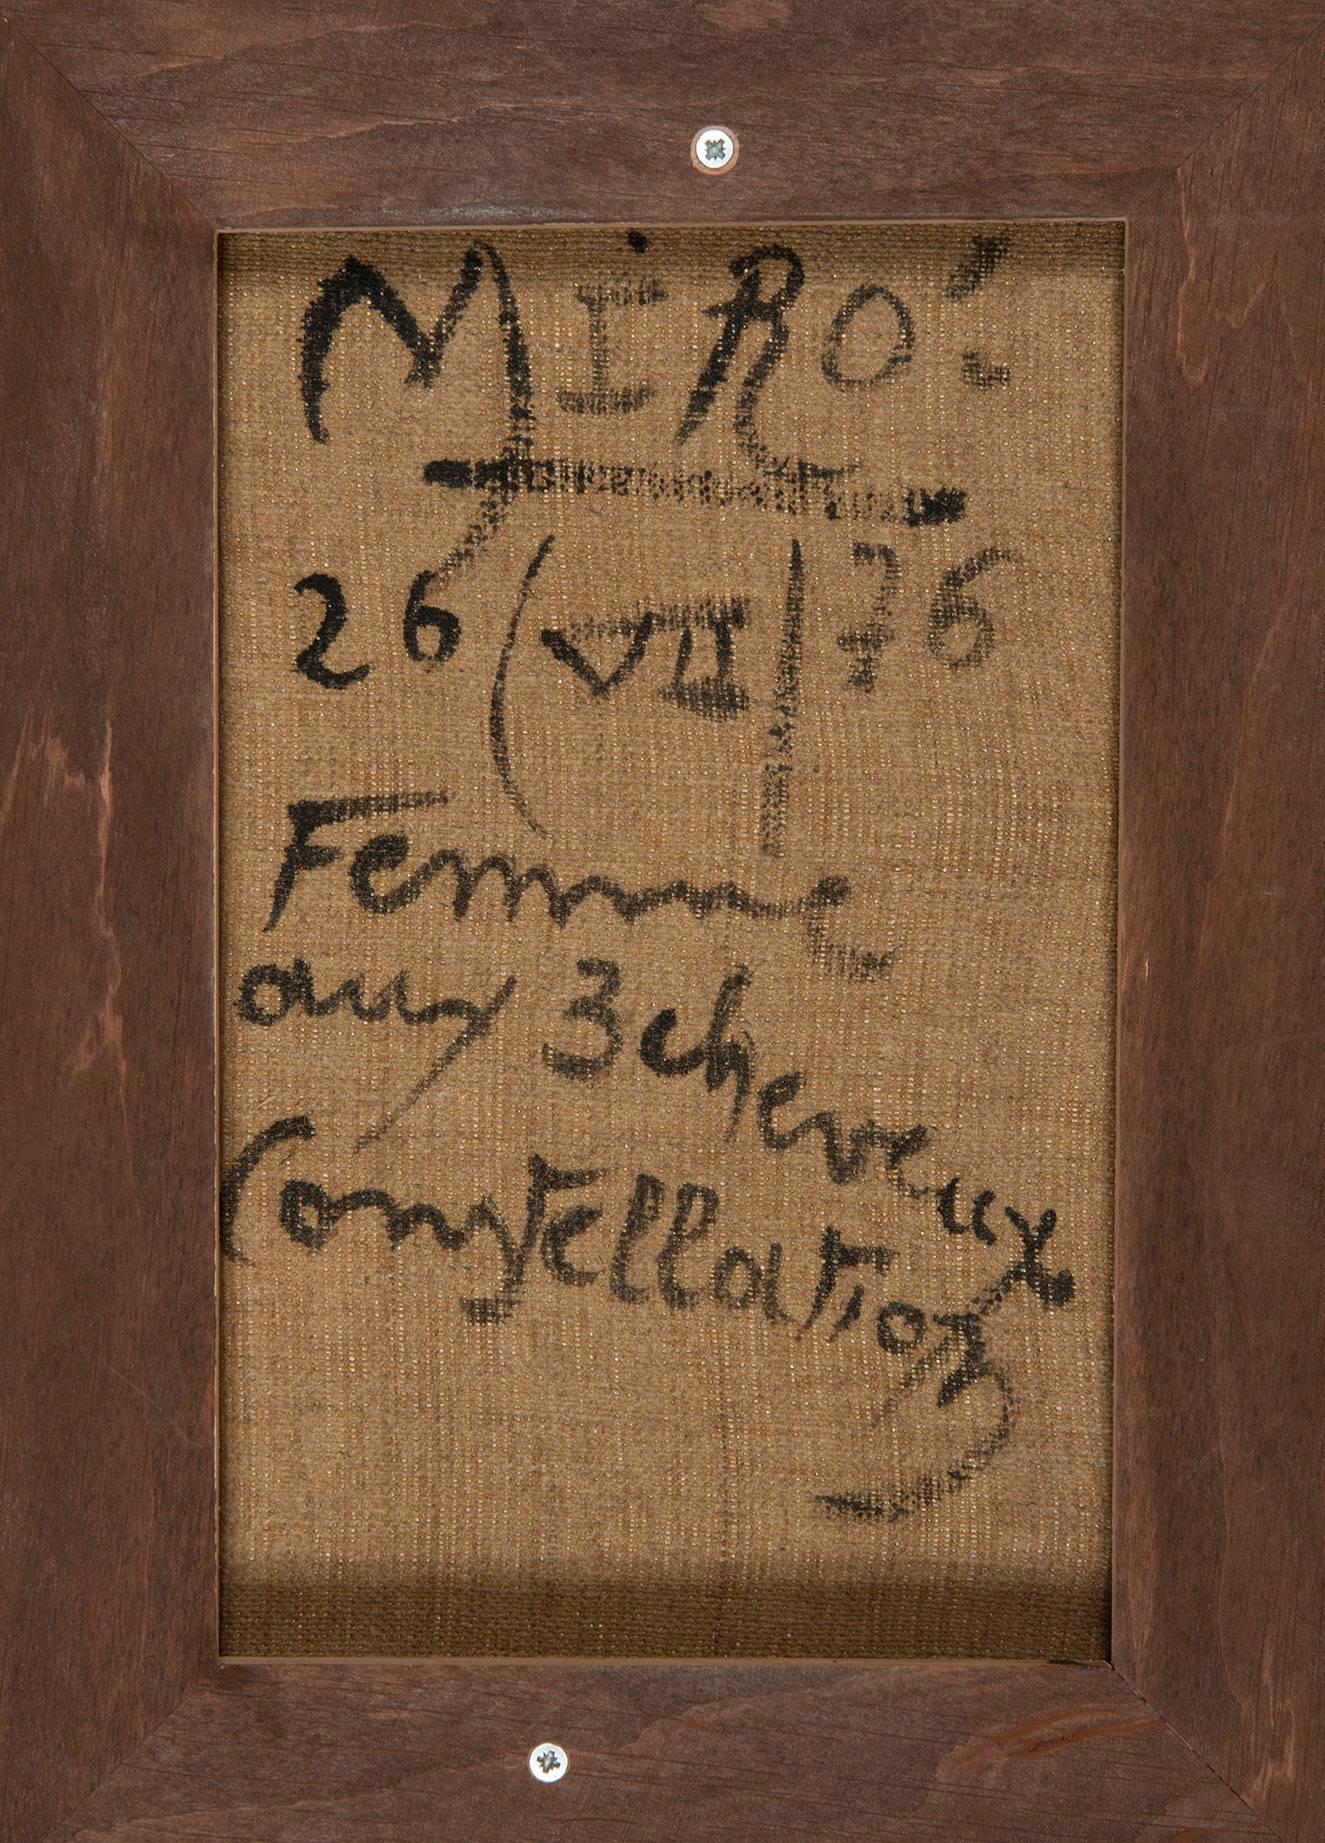 MiRO.
26 (VII) 76
Femme
aux 3 cheveux
Constellation